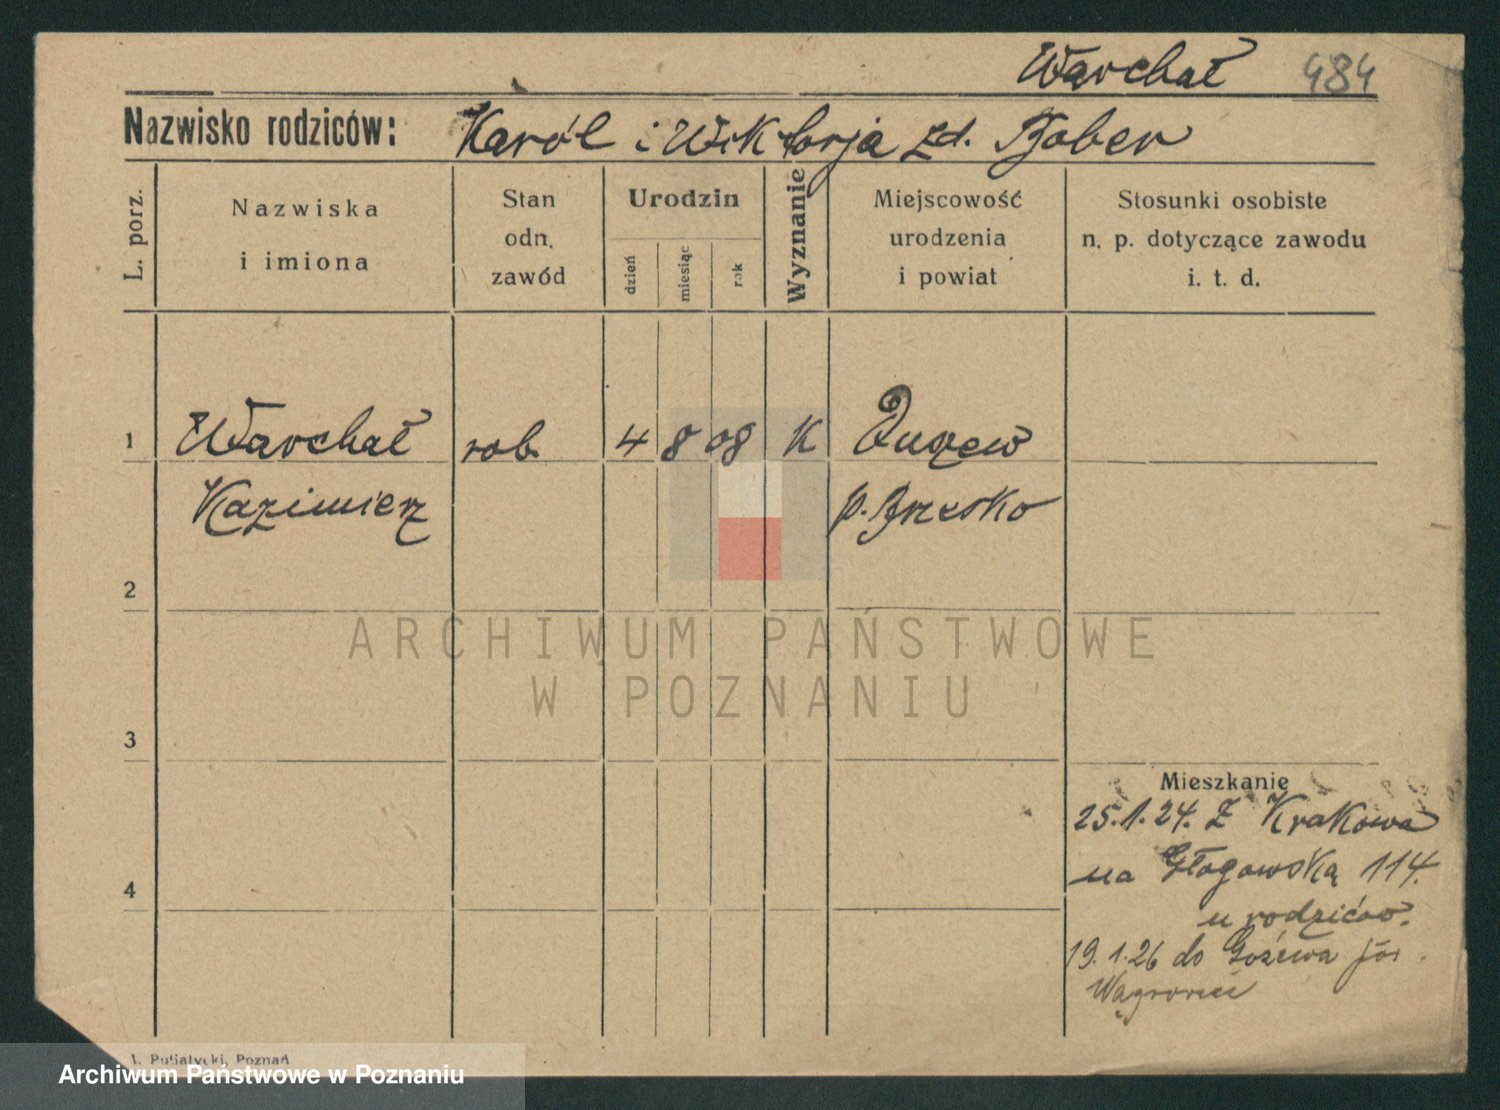 Warchał 484
Nazwisko rodziców: Karól i Wiktorja zd. Bober
L. porz.
Nazwiska
i imiona
Stan
odn.
zawód
Urodzin
dzień
miesiąc
rok
Wyznanie
Miejscowość
urodzenia
i powiat
Stosunki osobiste
n. p. dotyczące zawodu
i. t. d.
1 Warchał rob. 4 8 08 K
Kazimierz p. Brzesko
2
ARCHIWUM PAŃSTWOWE
W POZNANIU
3
Mieszkanie
25.1.24. Z Krakowa
na Głogowską 114.
4
u rodziców.
19.1.26 do
Putiatycki, Poznań
Archiwum Państwowe w Poznaniu